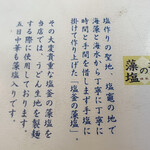 の
藻塩
塩作りの聖地 塩竈の地で
海藻と海水から丁寧に丁寧に
時間と手間を惜しまず手塩に
掛けて作り上げた「塩釜の藻塩」
その大変貴重な塩釜の藻塩を
当店では、うどん生地を製麺
する際に使用しております。
五目中華も藻塩入りです。